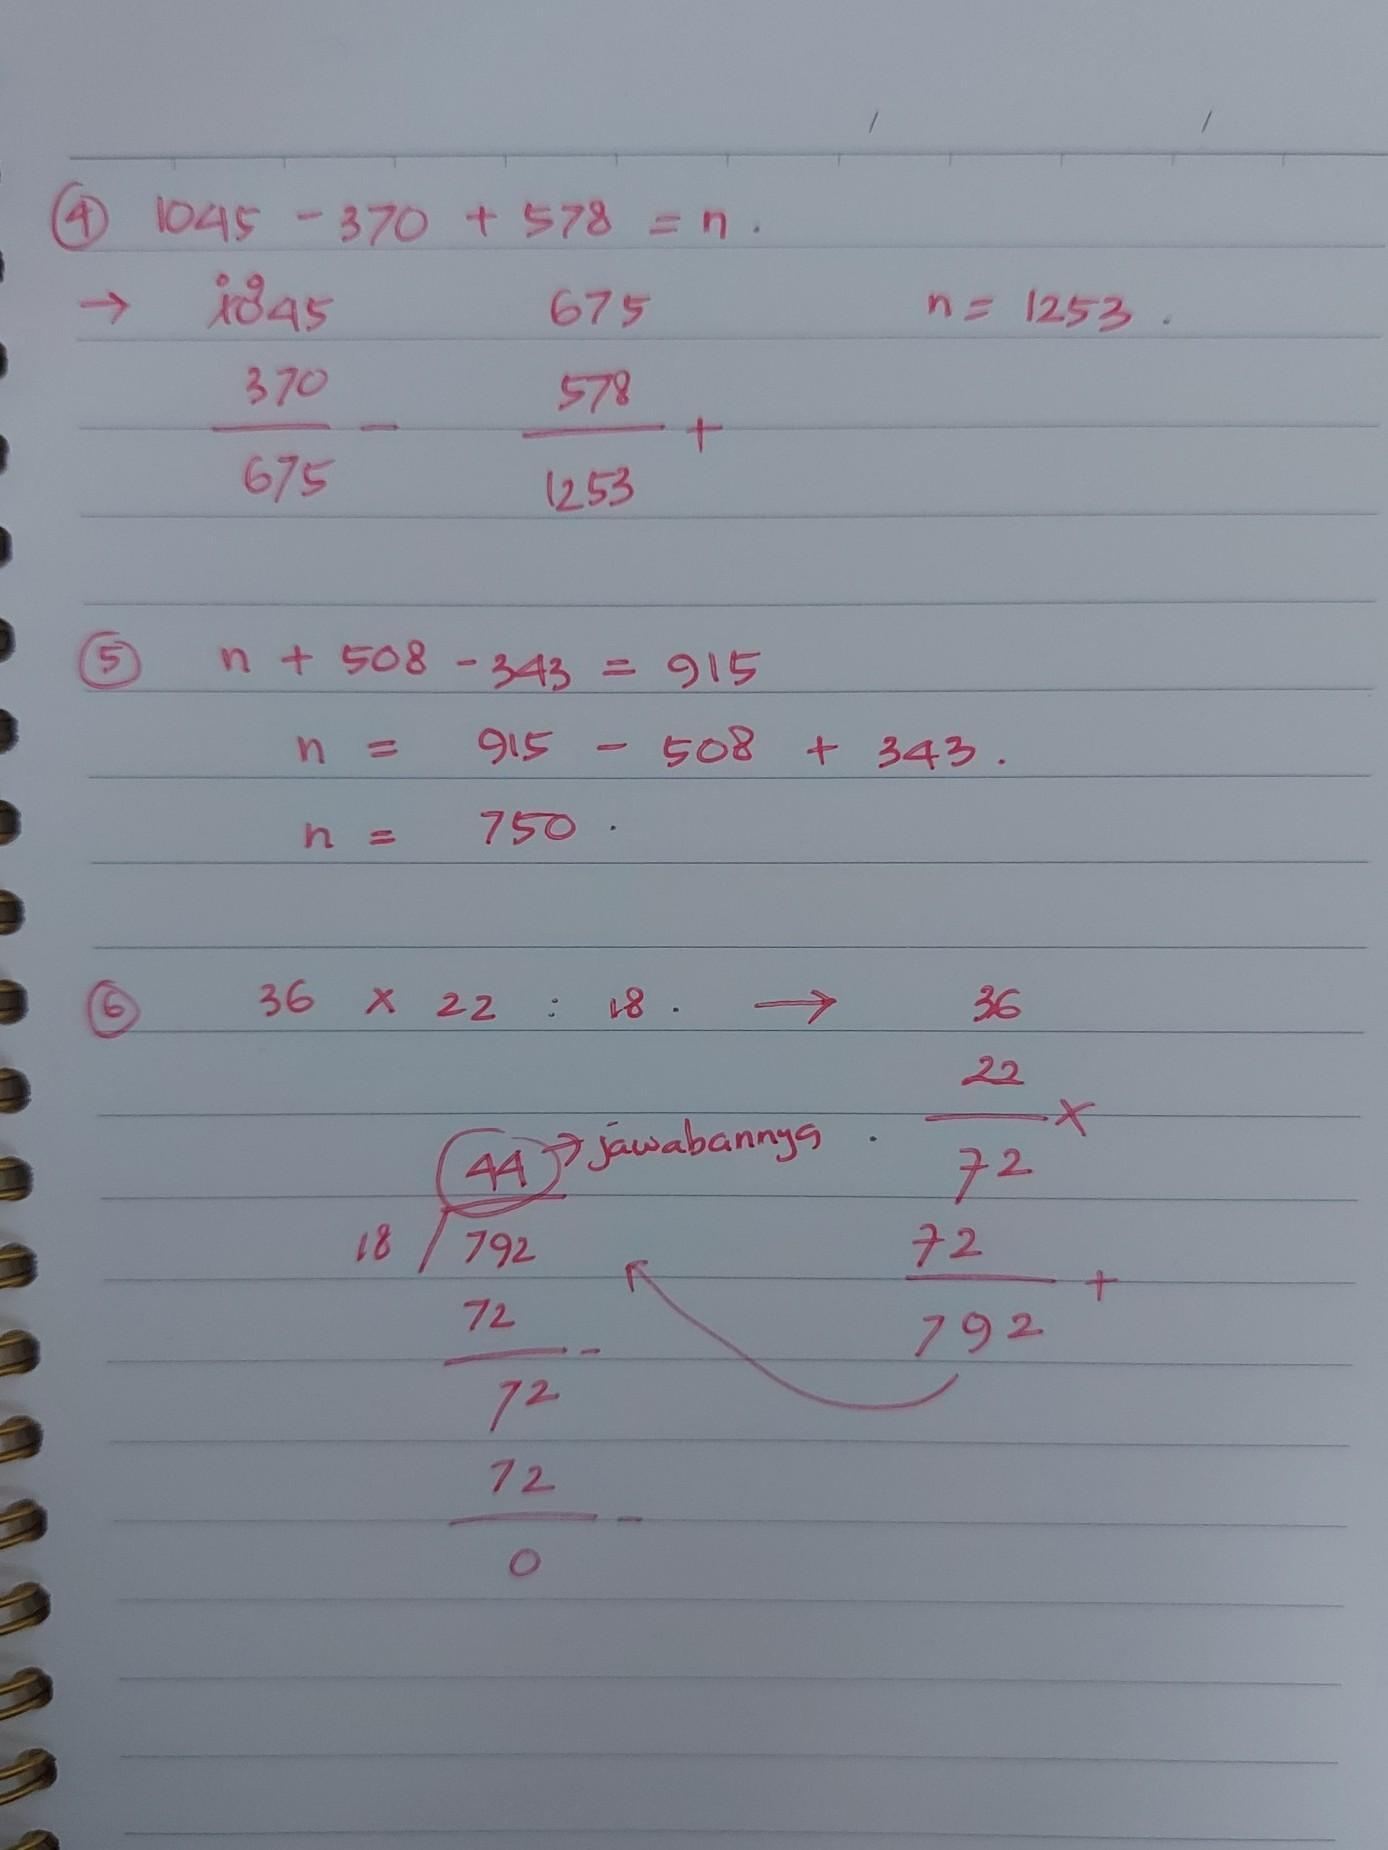 ④ 1045 - 370 + 578 = n.
→ 1045 675 n = 1253.
370 578
- +
675 1253
⑤ n + 508 - 343 = 915
n = 915 - 508 + 343.
n = 750.
⑥ 36 x 22 : 18. → 36
22
x
44 → jawabannya. 72
18 / 792 72
+
72 792
-
72
72
-
0